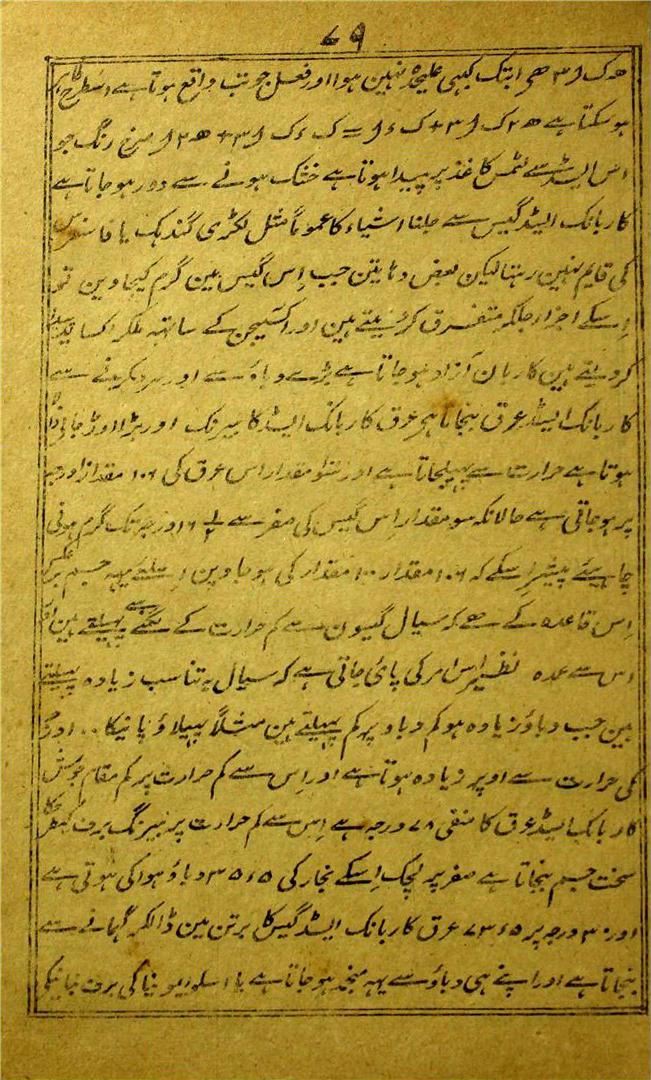 ۷۹
ھ ک ا ۳ ھی ابتک کبھی علیحدہ نہین ہوا اور فعل جو تب واقع ہوتا ہے اسطرح
ہو سکتا ہے ھ ۲ ک ا ۳ + ک ء ا = ک ء ک ا ۳ + ھ ۲ ا سرخ رنگ جو
اس ایسڈ سے لٹمس کاغذ پر پیدا ہوتا ہے خشک ہونے سے دور ہو جاتا ہے
کاربانک ایسڈ گیس سے جلنا اشیاء کا عموماً مثل لکڑی گندہک یا فاسفرس
کی قایم نہین رہتا لیکن بعض دہاتین جب اِس گیس مین گرم کیجاوین تو
اِسکے اجزا جلکر متفرق کر دیتے ہین اور اکسیجن کے ساتہہ ملکر اکسائڈ پیدا
کر دیتے ہین کاربان آزاد ہو جاتا ہے بڑے دباؤ سے اور سرد کرنے سے
کاربانک ایسڈ عرق بنجاتا ہے عرق کاربانک ایسڈ کا بیرنگ اور بڑا اوڑ جانیوالا
ہوتا ہے حرارت سے پہیلجاتا ہے اور سَو مقدار اس عرق کی ۱۰۶ مقدار
پر ہو جاتی ہے حالانکہ سو مقدار اِس گیس کی صفر سے ۱۶ درجہ تک گرم ہونی
چاہیئے پیشتر اِسکے کہ ۱۰۶ مقدار ۱۰۰ مقدار کی ہو جاوین اِسلئے یہہ جسم برعکس
اِس قاعدہ کے ہے کہ سیال گیسون سے کم حرارت کے لگنے سے پہیلتے ہین اور
اس سے عمدہ نظیر اس امر کی پائی جاتی ہے کہ سیال بہ تناسب زیادہ پہیلتے
ہین جب دباؤ زیادہ ہو کم دباو پر کم پہیلتے ہین مثلاً پہیلاؤ پانی کا
کی حرارت سے اوپر زیادہ ہوتا ہے اور اِس سے کم حرارت پر کم مقام جوش
کاربانک ایسڈ عرق کا منفی ۷۸ درجہ ہے اِس سے کم حرارت پر بیرنگ برف
سخت جسم بنجاتا ہے صفر پر لچک اِسکے بخار کی ۳۵ء۵ دباؤ ہوا کی ہوتی ہے
اور ۳۰ درجہ پر ۷۳ء۵ عرق کاربانک ایسڈ گیس کا برتن مین ڈالکر گہمانے سے
بنجاتا ہے اور اپنے ہی دباؤ سے یہہ منجمد ہو جاتا ہے یا کی برف